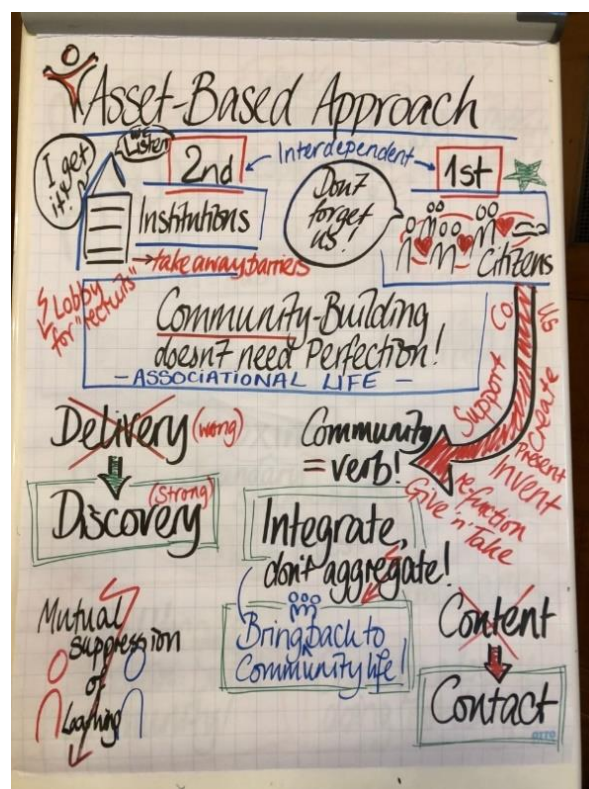 Asset-Based Approach
I get
it!
WE
Listen
2nd
Interdependent
1st
Institutions
Don't
forget
us!
Citizens
→take away barriers
Lobby
for "recruits"
Community-Building
doesn't need Perfection!
- ASSOCIATIONAL LIFE -
Support
Co
Us
Create
Present
Invent
Give 'n' Take
Delivery (wrong)
Discovery (strong)
Community
= verb!
Integrate,
don't aggregate!
Bring back to
Community life!
Mutual
suppression
of
Learning
Content
Contact